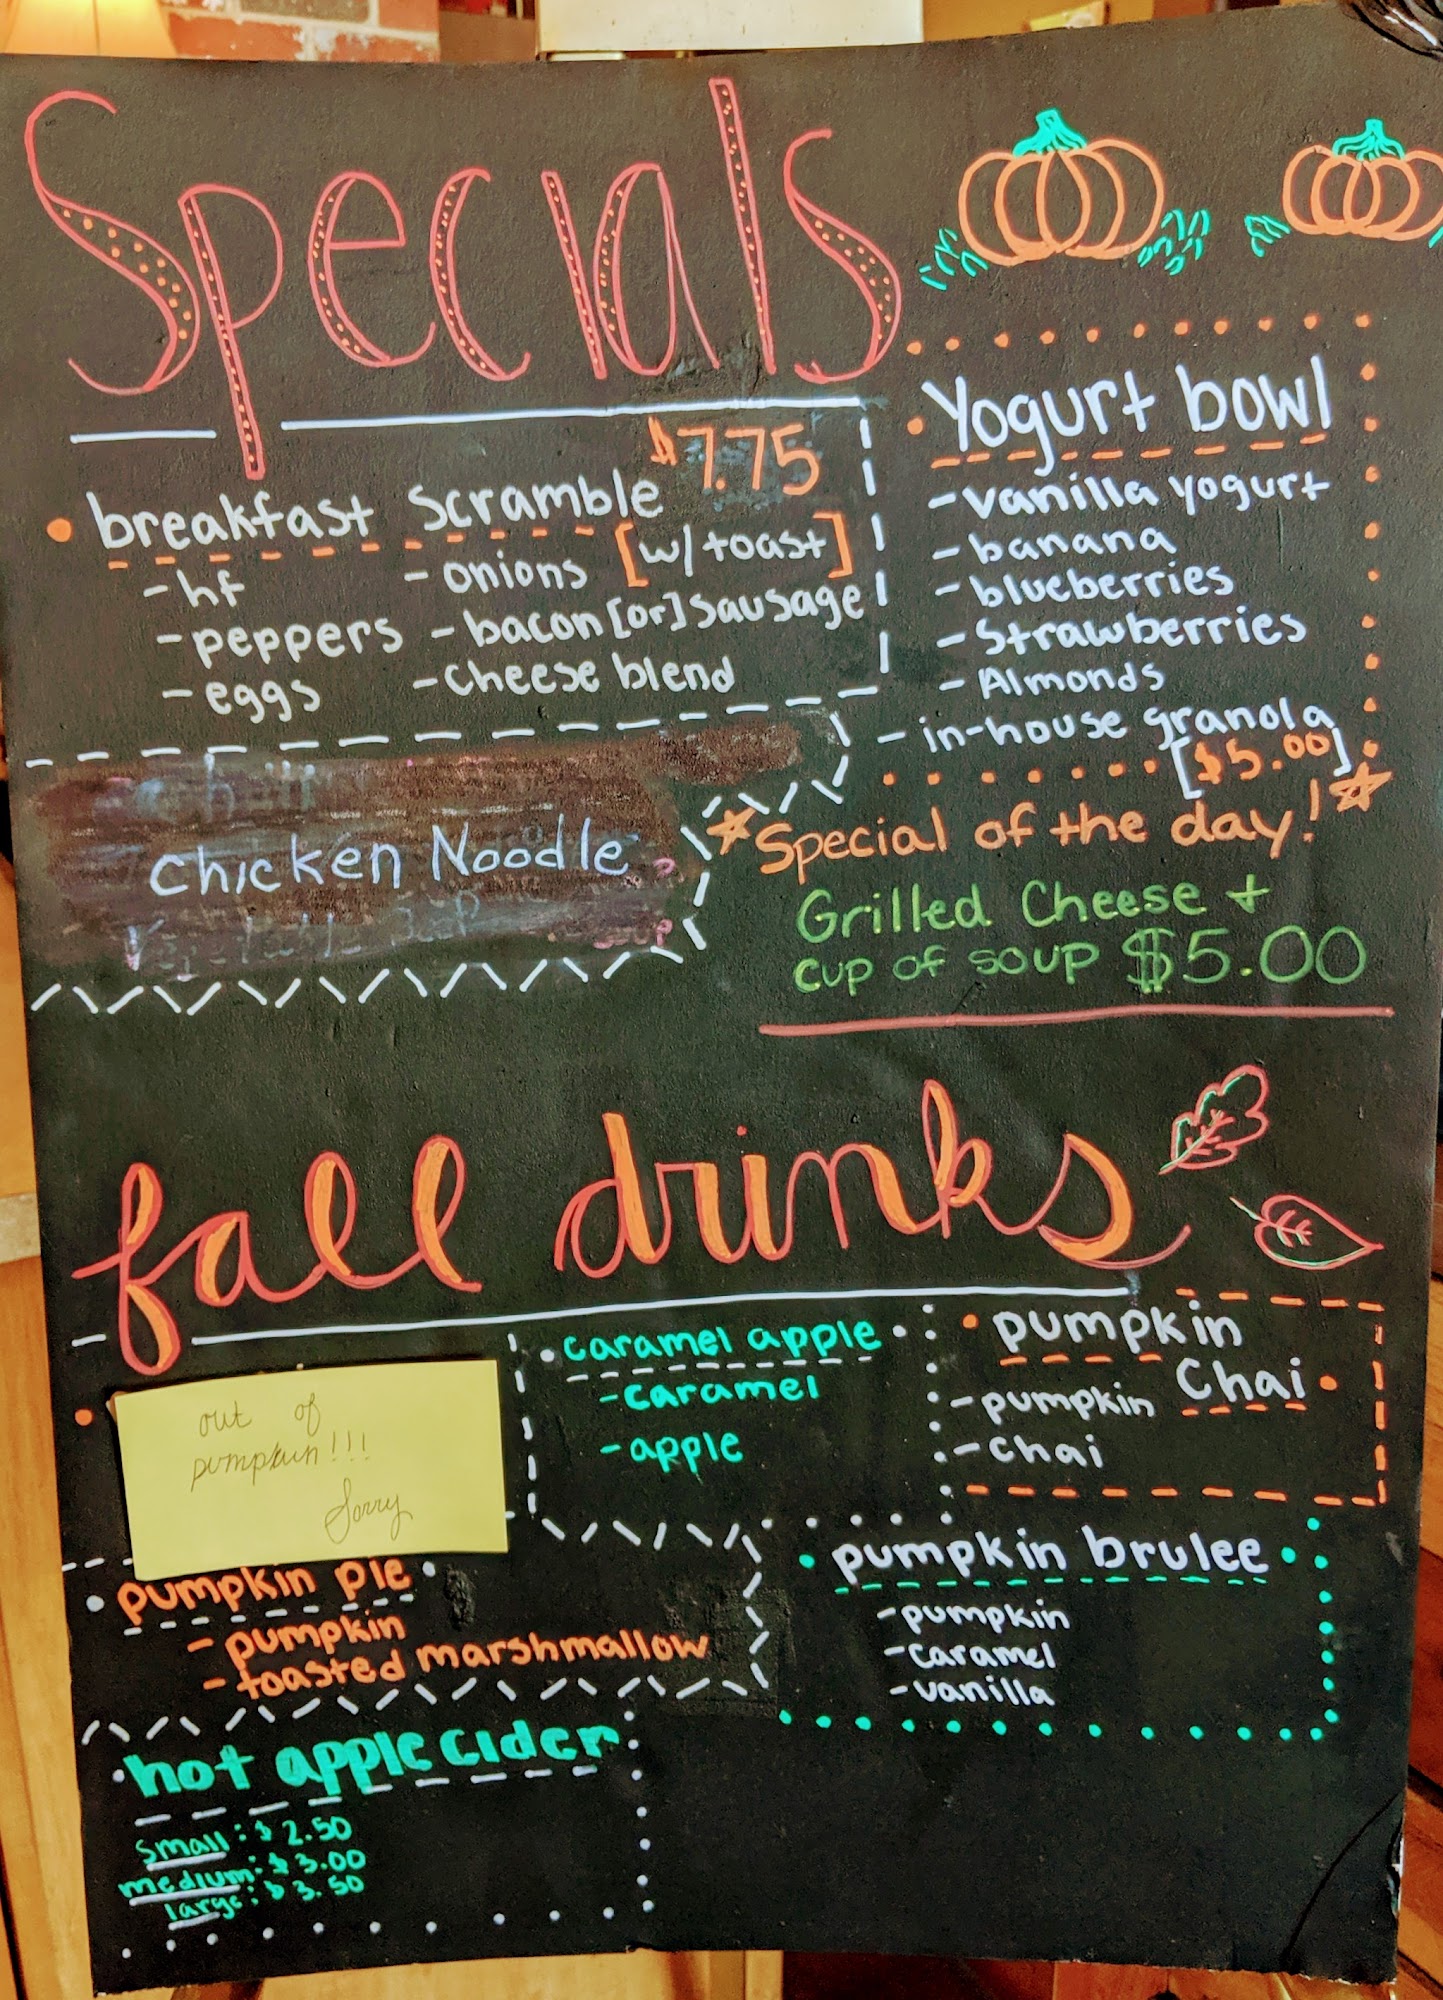 Specials
• breakfast scramble $7.75
- hf
- peppers
- eggs
- onions [w/toast]
- bacon [or] sausage
- cheese blend
• Yogurt bowl
- vanilla yogurt
- banana
- blueberries
- Strawberries
- Almonds
- in-house granola
[$5.00]
Chicken Noodle
Special of the day!
Grilled Cheese +
cup of soup $5.00
fall drinks
out of
pumpkin!!!
Sorry
• caramel apple •
- caramel
- apple
• pumpkin
Chai •
- pumpkin
- chai
• pumpkin pie •
- pumpkin
- toasted marshmallow
• pumpkin brulee •
- pumpkin
- caramel
- vanilla
• hot apple cider
small: $2.50
medium: $3.00
large: $3.50